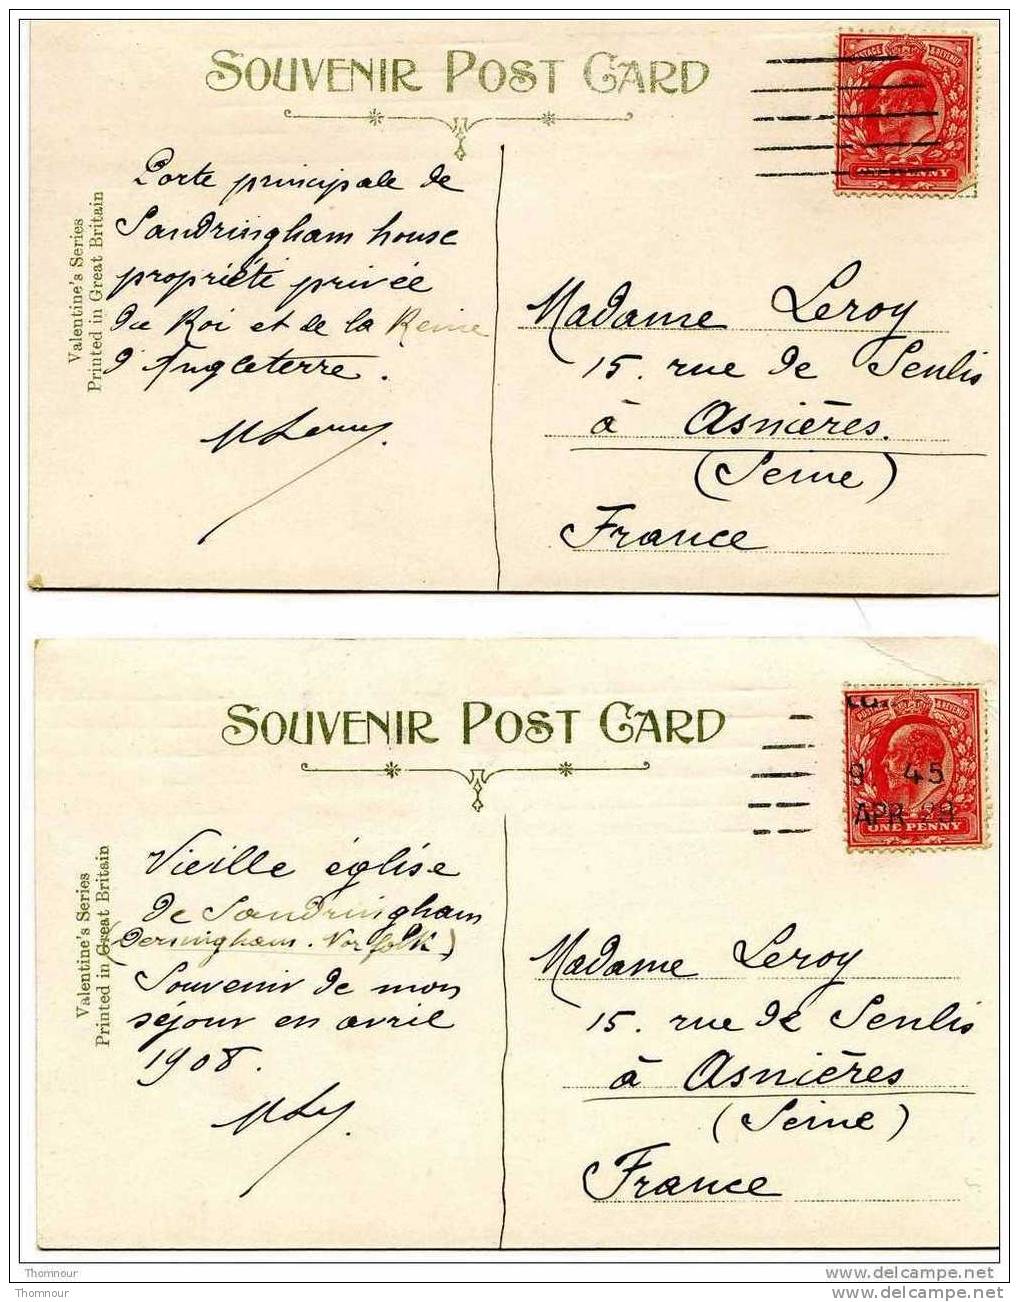 SOUVENIR POST CARD
POSTAGE & REVENUE
ONE PENNY
Valentine's Series
Printed in Great Britain
Porte principale de
Sandringham house
propriété privée
du Roi et de la Reine
d'Angleterre.
Madame Leroy
15. rue de Senlis
à Asnières.
(Seine)
France
SOUVENIR POST CARD
POSTAGE & REVENUE
9 45
APR 29
ONE PENNY
Valentine's Series
Printed in Great Britain
Vieille église
de Sandringham
(Dersingham. Norfolk)
Souvenir de mon
séjour en avril
1908.
Madame Leroy
15. rue de Senlis
à Asnières
(Seine)
France
Thomnour
www.delcampe.net
Thomnour
www.delcampe.net